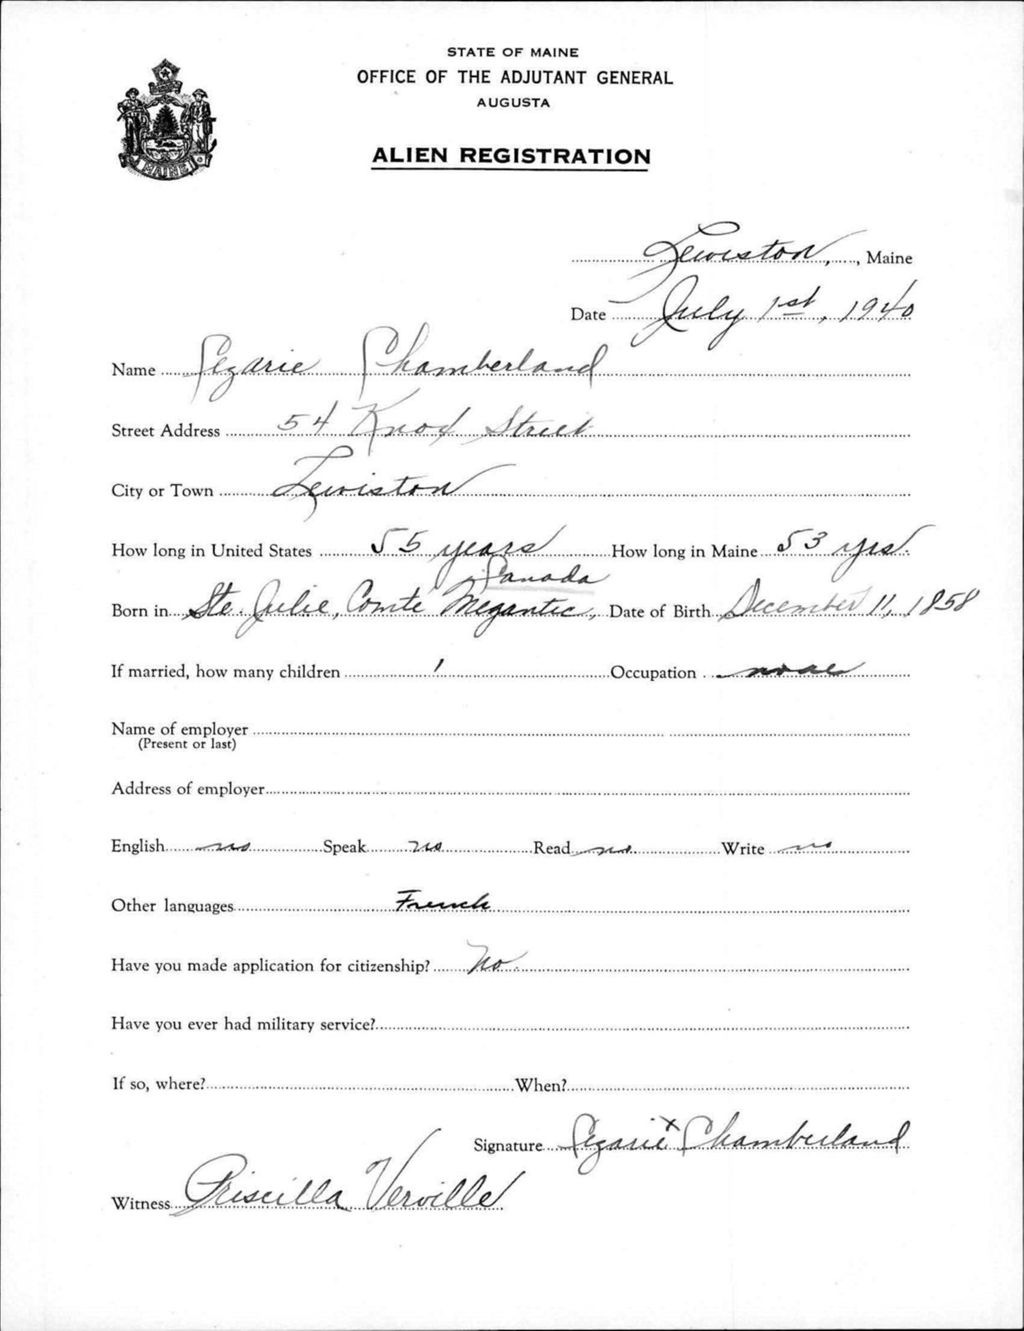 STATE OF MAINE
OFFICE OF THE ADJUTANT GENERAL
AUGUSTA
ALIEN REGISTRATION
MAINE
Lewiston, Maine
Date July 1st, 1940
Name Cezarie Chamberland
Street Address 54 Knox Street
City or Town Lewiston
How long in United States 55 years How long in Maine 53 yrs.
Canada
Born in Ste. Julie, Comté Megantic, Date of Birth December 11, 1858
If married, how many children 1 Occupation none
Name of employer
(Present or last)
Address of employer
English no Speak no Read no Write no
Other languages French
Have you made application for citizenship? No.
Have you ever had military service?
If so, where? When?
Signature Cezarie x Chamberland
Witness Priscilla Verville